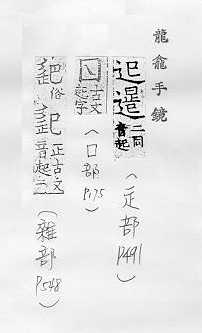 龍龕手鏡
二同
音起
(辵部 P491)
古文
起字
(口部 P175)
俗
正古文
音起二
(雜部 P548)